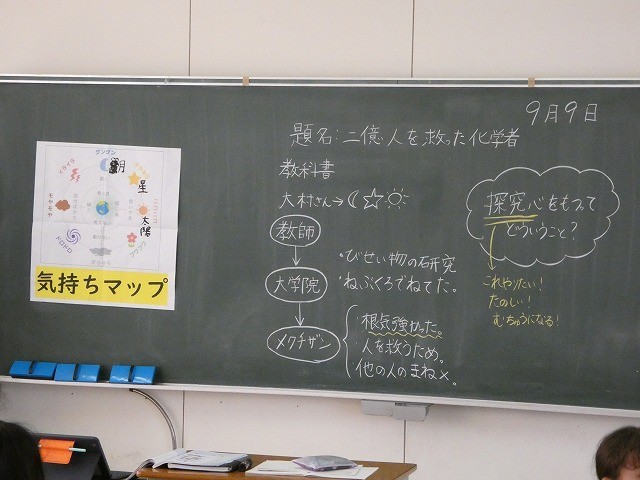 9月9日
題名：二億人を救った化学者
教科書
大村さん→
教師
大学院
・びせい物の研究
・ねぶくろでねてた。
メクチザン
根気強かった。
人を救うため。
他の人のまね×。
探究心をもって
どういうこと？
これやりたい！
たのしい！
むちゅうになる！
ガンガン
イライラ
モヤモヤ
月
星
太陽
気持ちマップ